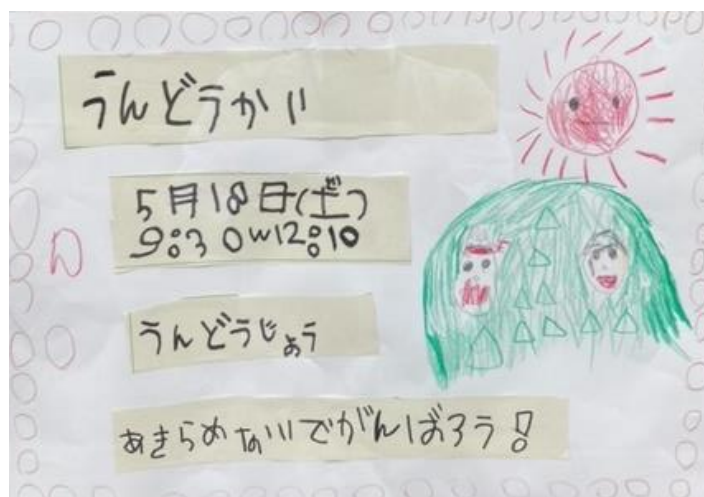 うんどうかい
5月18日(土)
9:30~12:10
うんどうじょう
あきらめないでがんばろう!